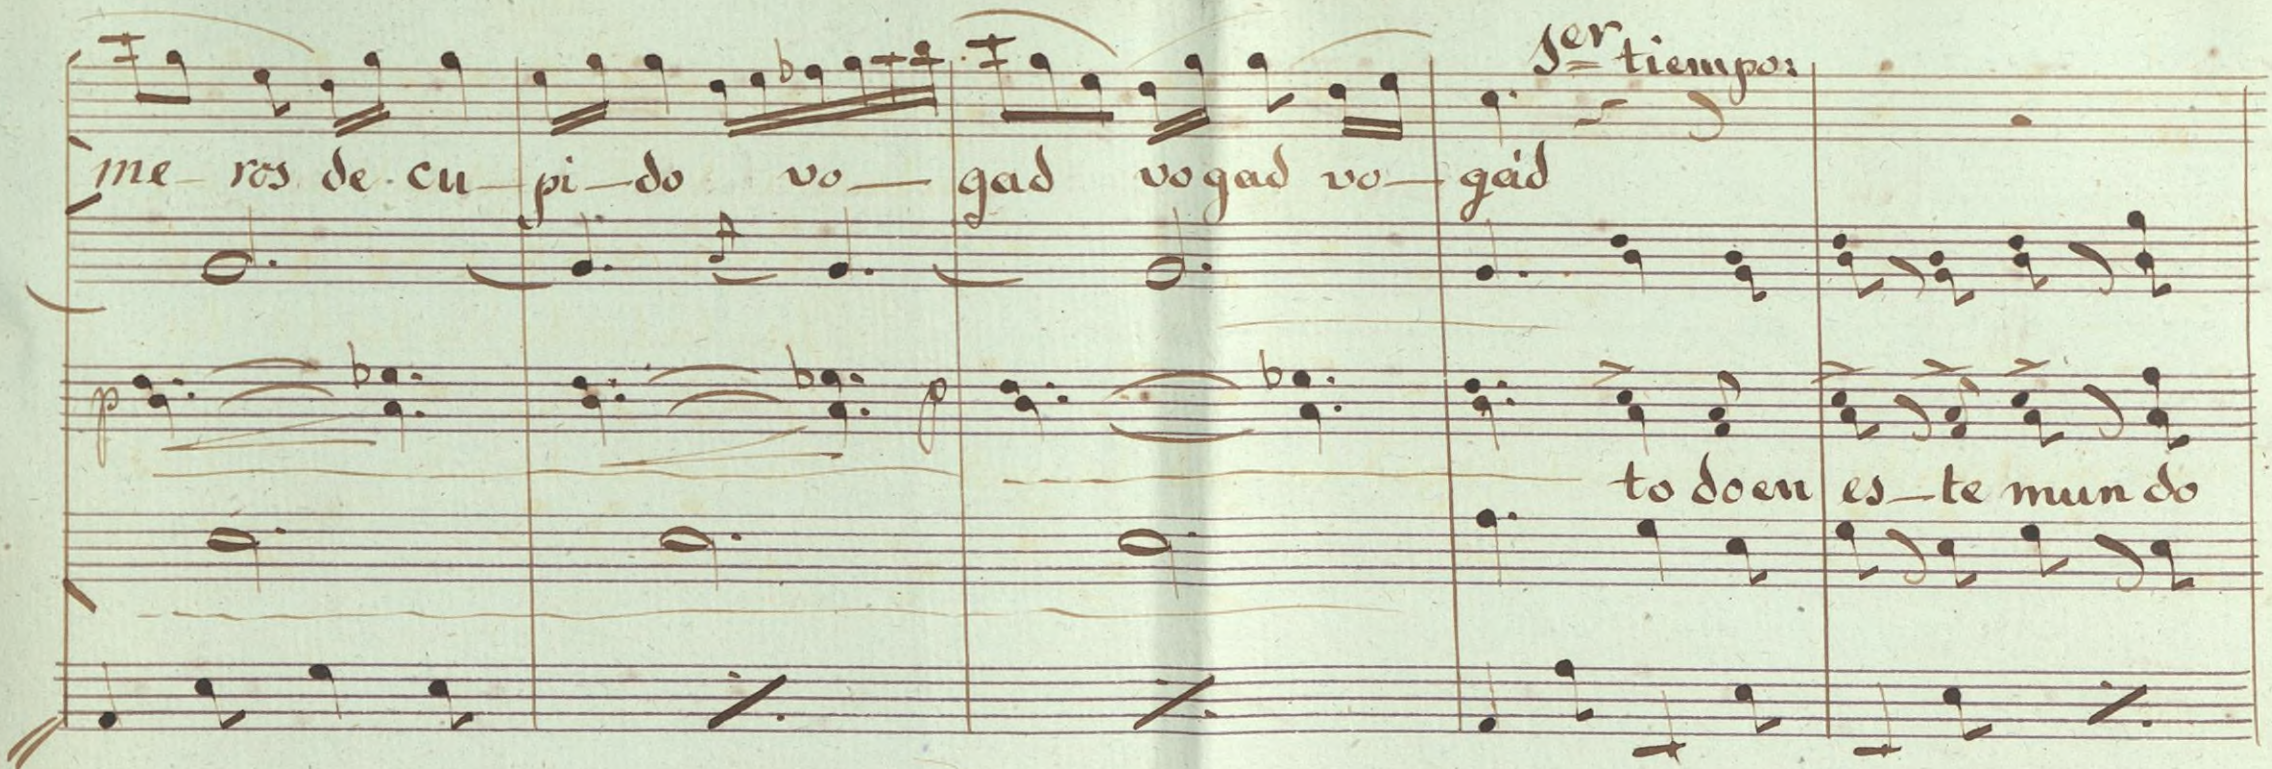 1er tiempo:
me- ros de. cu- pi- do vo- gad vo gad vo- gád
p p
to doen es- te mun do